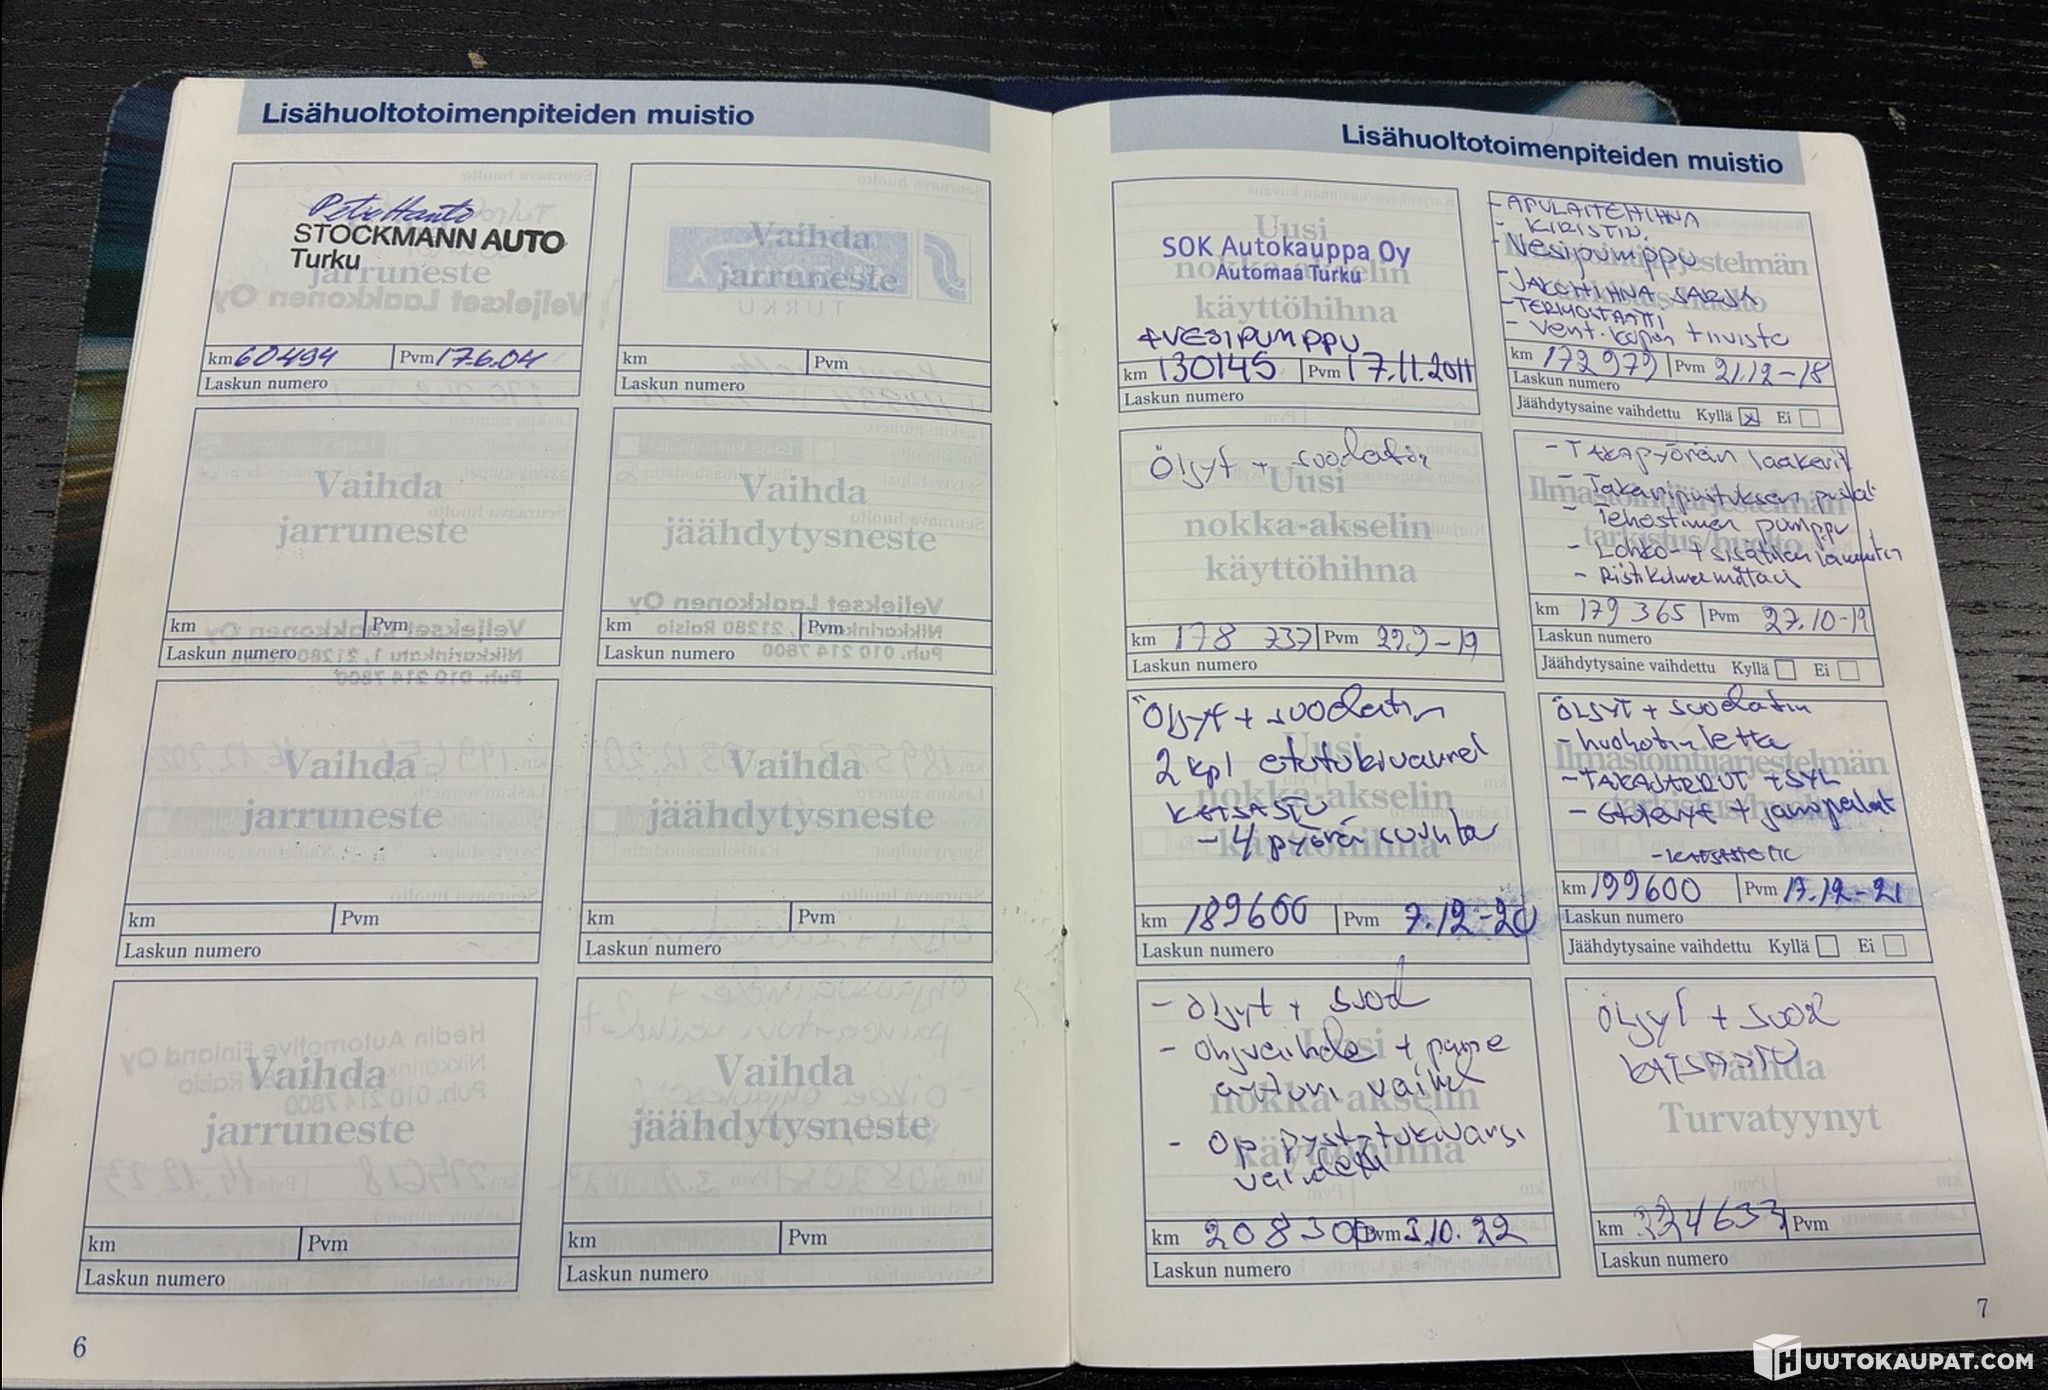 Lisähuoltotoimenpiteiden muistio
STOCKMANN AUTO
Turku
Vaihda
jarruneste
km 60494 Pvm 17.6.04
Laskun numero
Vaihda
jarruneste
TURKU
km Pvm
Laskun numero
Vaihda
jarruneste
km Pvm
Laskun numero
Vaihda
jäähdytysneste
Veljekset Laakkonen Oy
km Pvm
Laskun numero
Vaihda
jarruneste
km Pvm
Laskun numero
Vaihda
jäähdytysneste
km Pvm
Laskun numero
Vaihda
jarruneste
km Pvm
Laskun numero
Vaihda
jäähdytysneste
km Pvm
Laskun numero
6
Lisähuoltotoimenpiteiden muistio
Uusi
nokka-akselin
käyttöhihna
SOK Autokauppa Oy
Automaa Turku
+VESIPUMPPU
km 130145 Pvm 17.11.2011
Laskun numero
- APULAITEHIHNA
- KIRISTIN
- Vesipumppu
- JAKOHIHNA SARJA
- TERMOSTAATTI
- vent. kopan tiiviste
km 172979 Pvm 21.12-18
Laskun numero
Jäähdytysaine vaihdettu Kyllä x Ei
Öljyt + suodatin
Uusi
nokka-akselin
käyttöhihna
km 178 737 Pvm 22.9-19
Laskun numero
- Takapyörän laakerit
- Takaripustuksen puslat
- Tehostimen pumppu
- Lohko- + sisätilan lämmitin
Ilmastointijärjestelmän
tarkistus/huolto
km 179 365 Pvm 27.10-19
Laskun numero
Jäähdytysaine vaihdettu Kyllä Ei
Öljyt + suodatin
2 kpl etutukivarret
KATSASTU
- 4 pyörän suunta
Uusi
nokka-akselin
käyttöhihna
km 189600 Pvm 7.12-20
Laskun numero
ÖLJYT + suodatin
- TAKAJARRUT + SYL
- Etulevyt + jarrupalat
Ilmastointijärjestelmän
tarkistus/huolto
km 199600 Pvm 17.12-21
Laskun numero
Jäähdytysaine vaihdettu Kyllä Ei
- öljyt + suod
- Ohjvaihde + paine
anturi vaihd
- Op pystytukivarsi
Uusi
nokka-akselin
käyttöhihna
km 208300 Pvm 3.10.22
Laskun numero
Öljyt + suod
KATSASTU
Vaihda
Turvatyynyt
km 224633 Pvm
Laskun numero
7
HUUTOKAUPAT.COM